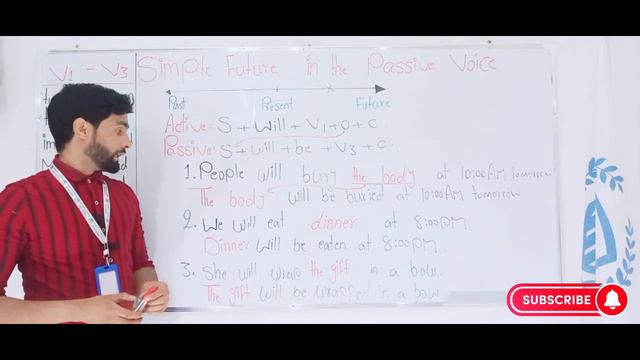 V1 - V3
Simple Future in the Passive Voice
Past Present Future
Active: S + Will + V1 + O + C
Passive: S + will + be + V3 + C.
1. People will bury the body at 10:00AM tomorrow
The body will be buried at 10:00AM tomorrow
2. We will eat dinner at 8:00PM.
Dinner will be eaten at 8:00PM.
3. She will wrap the gift in a bow.
The gift will be wrapped in a bow
SUBSCRIBE